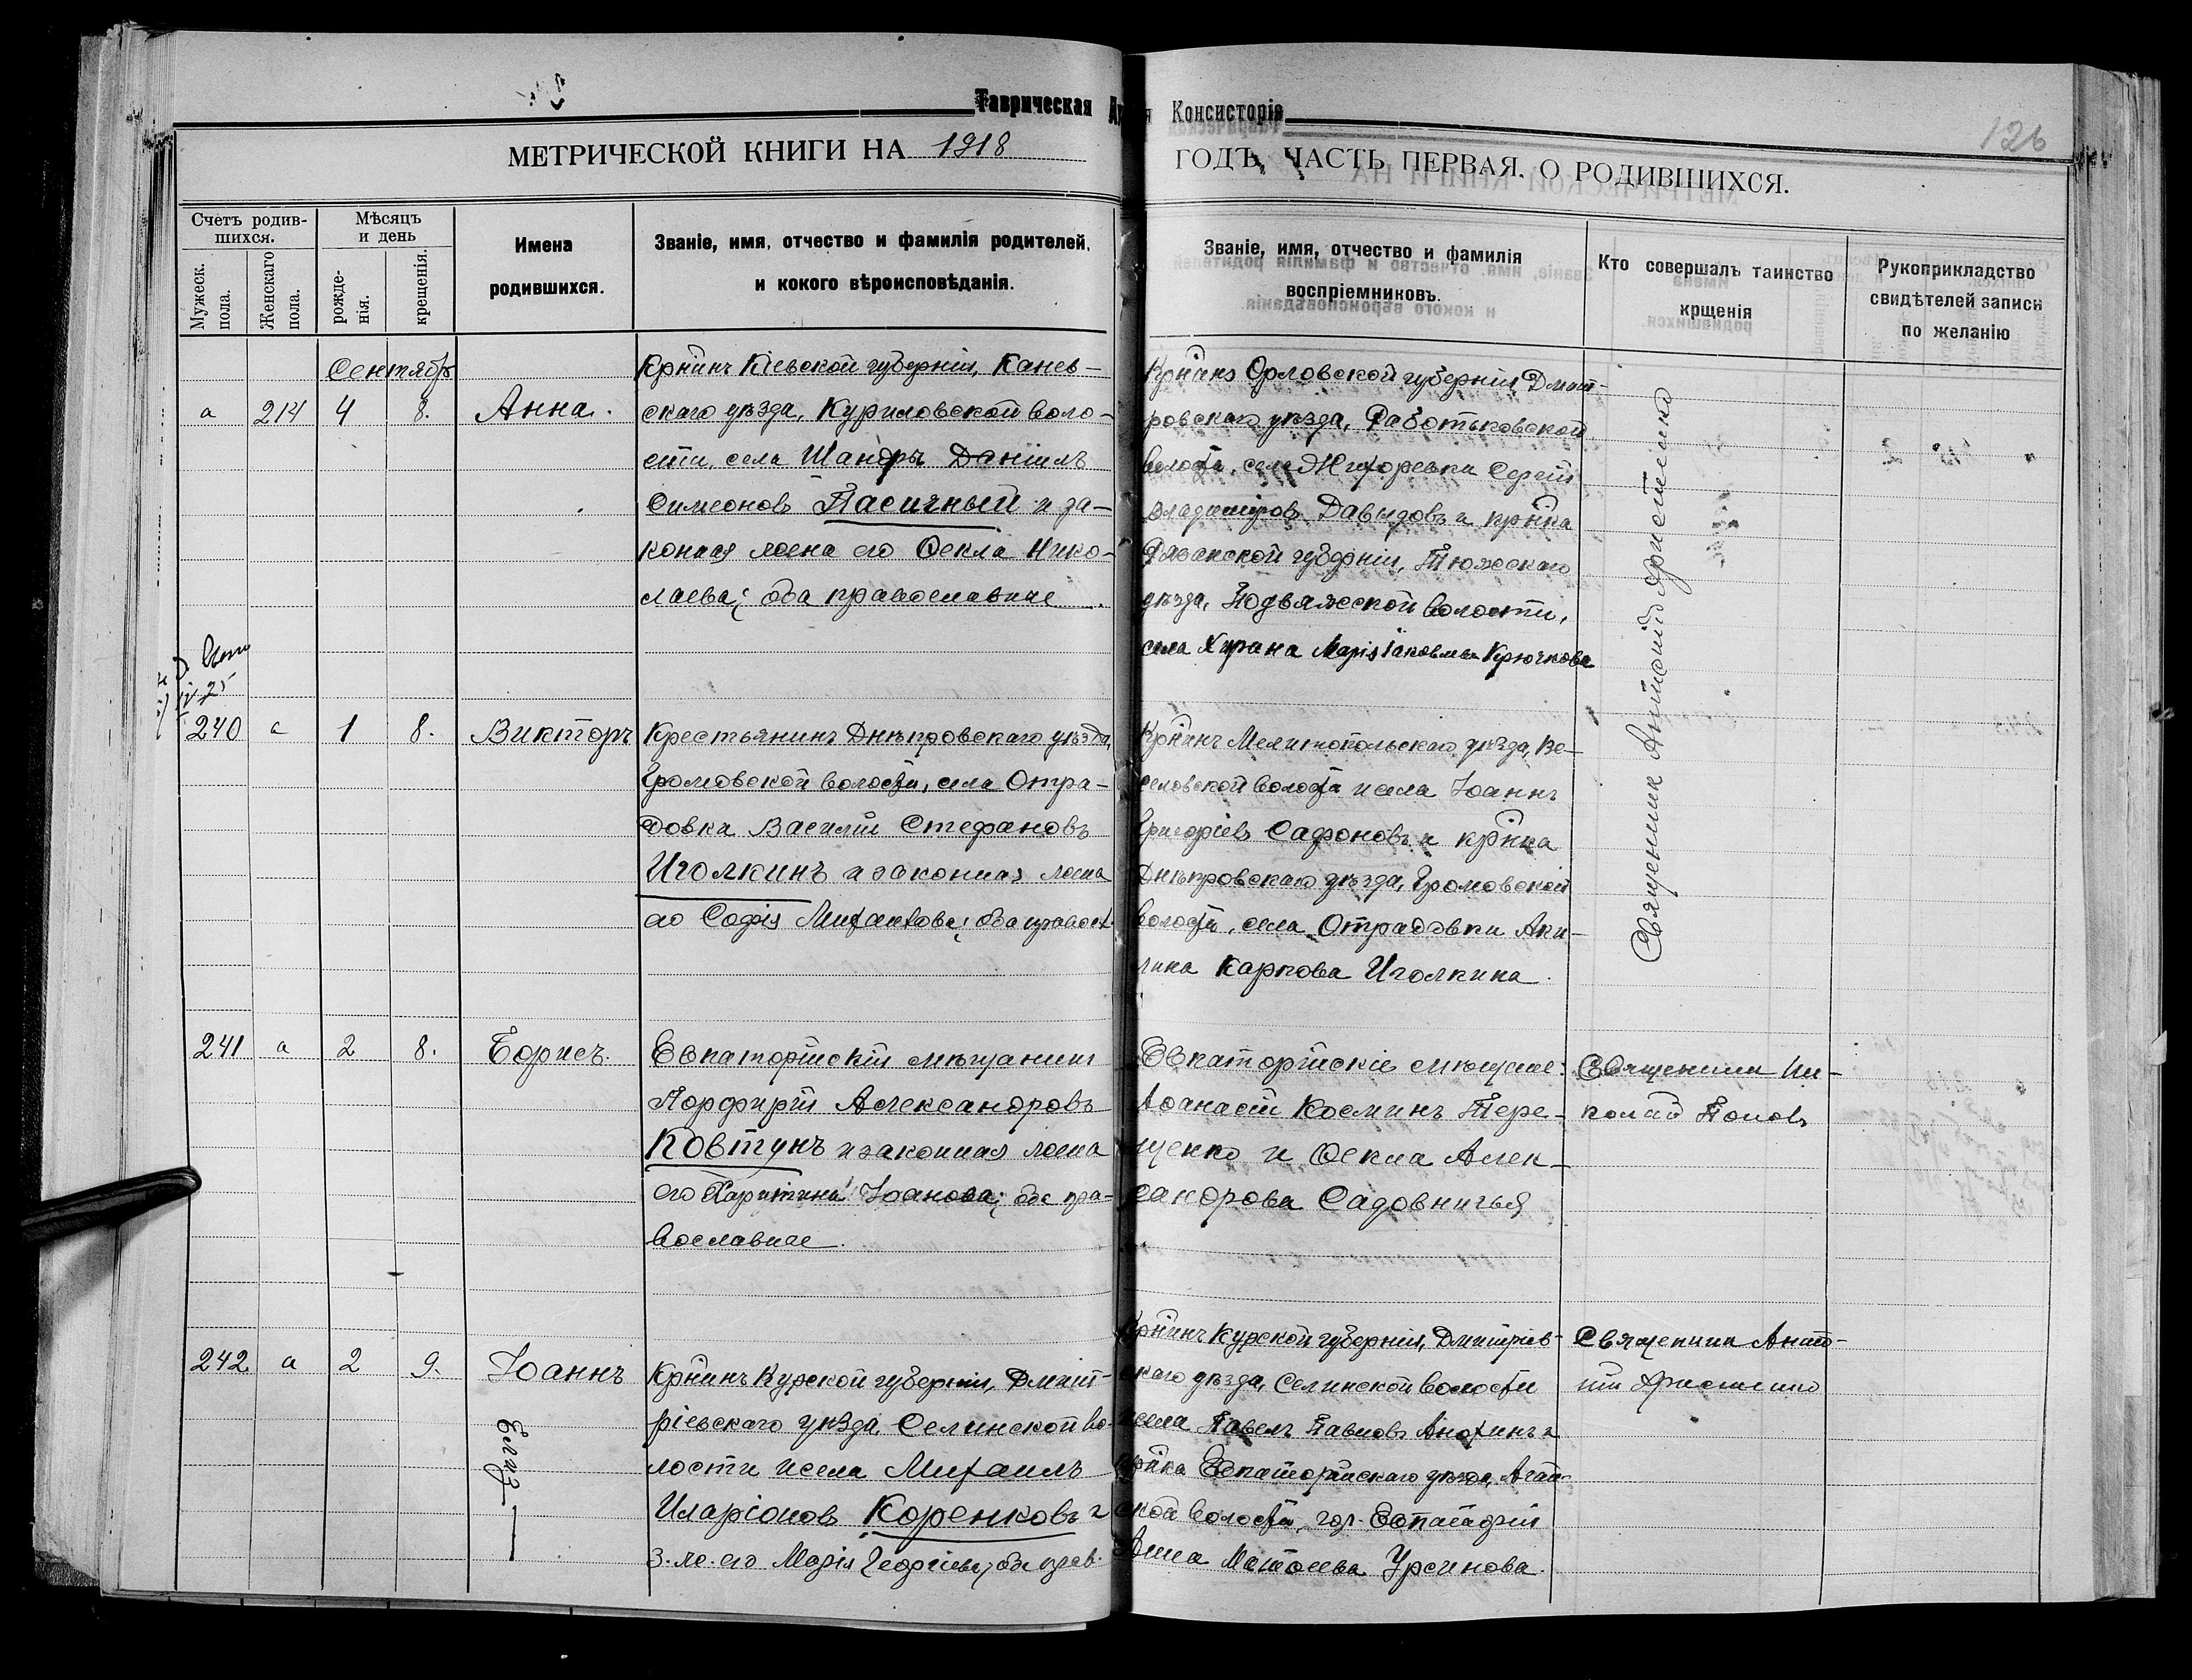 Таврическая
Консисторія
126
МЕТРИЧЕСКОЙ КНИГИ НА 1918
ГОДЪ, ЧАСТЬ ПЕРВАЯ, О РОДИВШИХСЯ.
Счетъ родив-
шихся.
Мужеск.
пола.
Женскаго
пола.
Мѣсяцъ
и день
рожде-
нія.
крещенія.
Имена
родившихся.
Званіе, имя, отчество и фамилія родителей,
и кокого вѣроисповѣданія.
Званіе, имя, отчество и фамилія
воспріемниковъ.
Кто совершалъ таинство
крщенія
Рукоприкладство
свидѣтелей записи
по желанію
Сентябр
а 214 4 8. Анна.
Крнинъ Кіевской губерніи, Канев-
скаго уѣзда, Куриловской воло-
сти, села Шандры Даніилъ
Симеоновъ Пасичный и за-
конная жена его Ѳекла Нико-
лаева; оба православные
Орловской губерніи, Дмит-
ровскаго уѣзда, Работьковской
волости, села Сергій
Владиміровъ Давыдовъ и крнка
Рязанской губерніи,
уѣзда, Подвяжской волости,
села Марія Іаковлева Крючкова
Священник Антоній Христенко
25
240 а 1 8. Викторъ
Крестьянинъ Днѣпровскаго уѣзда,
Громовской волости, села Отра-
довки Василій Стефановъ
Иголкинъ и законная жена
его Софія Михаилова; оба правосл.
Крнинъ Мелитопольскаго уѣзда, Ве-
селовской волости и села Іоаннъ
Григоріевъ Сафоновъ и крнка
Днѣпровскаго уѣзда, Громовской
волости, села Отрадовки Аки-
лина Карпова Иголкина.
241 а 2 8. Борисъ.
Евпаторійскій мѣщанинъ
Порфирій Александровъ
Ковтунъ и законная жена
его Харитина Іоанова; оба пра-
вославные.
Евпаторійскіе мѣщане:
Аѳанасій Косминъ Тере-
щенко и Ѳекла Алек-
сандрова Садовничья
Священник Ип-
полит Попов
242 а 2 9. Іоаннъ
Крнинъ Курской губерніи, Дмит-
ріевскаго уѣзда, Селинской во-
лости и села Михаилъ
Иларіоновъ Коренковъ и
з. ж. его Марія Георгіева; оба прав.
Крнинъ Курской губерніи, Дмитріев-
скаго уѣзда, Селинской волости
и села Павелъ Павловъ Анохинъ и
крнка Евпаторійскаго уѣзда,
ской волости, гор. Евпаторіи
Анна Матѳеева Урсинова.
Священник Анто-
ній Христенко